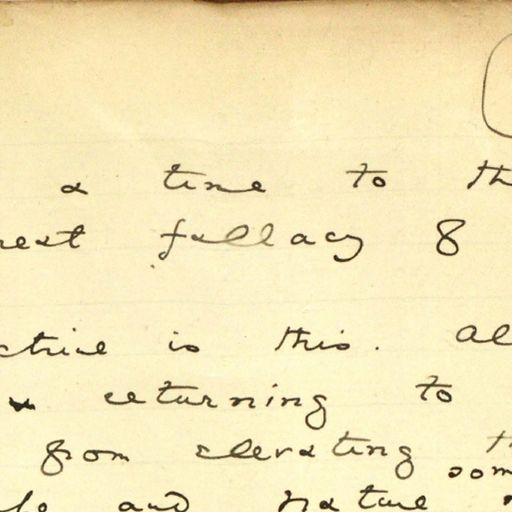 a time to th
reat fallacy 8
ctrine is this. Al
returning to
from elevating th
som
and nature